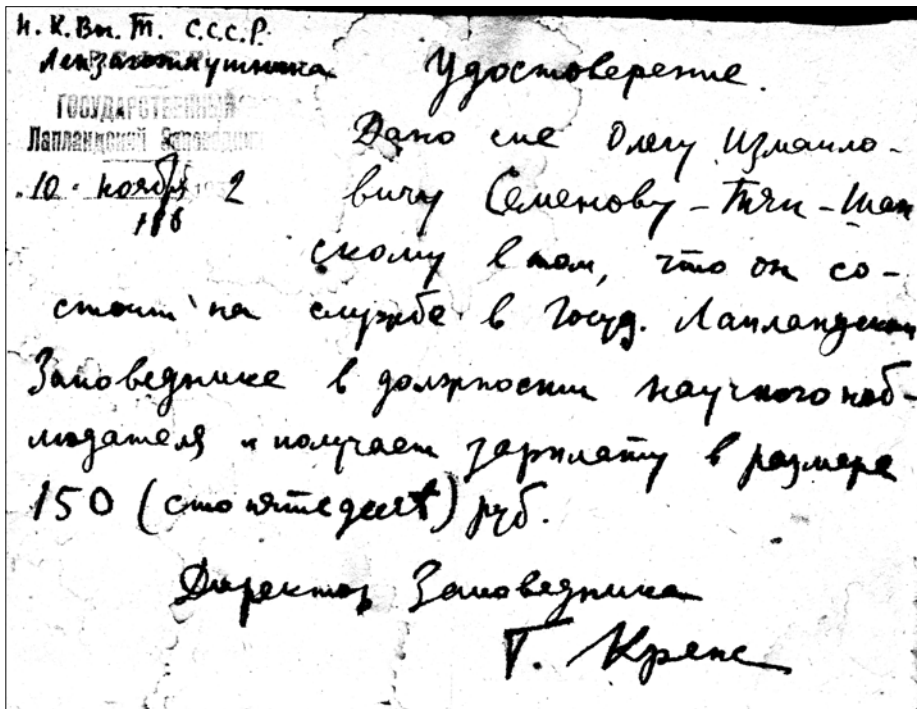 Н. К. Вн. Т. С.С.С.Р.
Удостоверение.
ГОСУДАРСТВЕННЫЙ
Лапландский Заповедник
Дано сие Олегу Измаило-
10 ноября 2
118
вичу Семенову-Тян-Шан
скому в том, что он со-
стоит на службе в Госуд. Лапландском
Заповеднике в должности научного наб-
людателя и получает зарплату в размере
150 (сто пятьдесят) руб.
Директор Заповедника
Г. Крепс